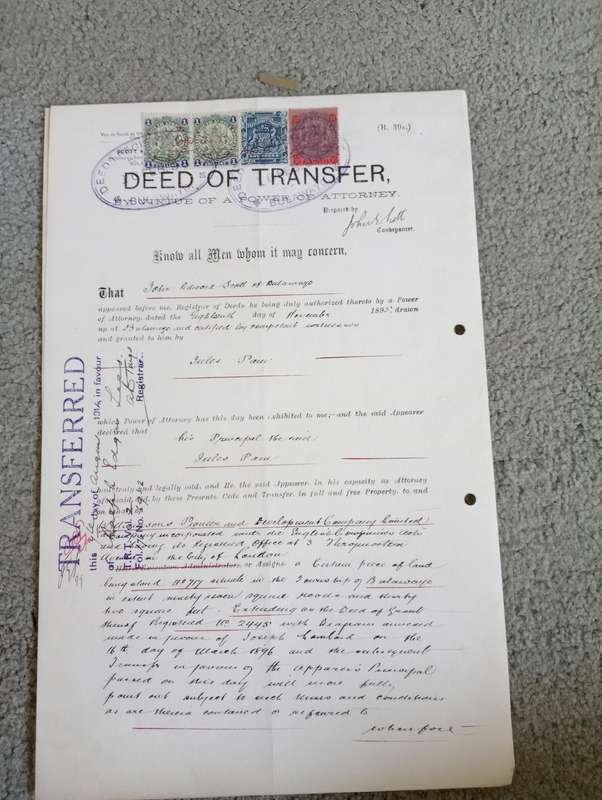 (B. 39.)
DEED OF TRANSFER,
BY VIRTUE OF A POWER OF ATTORNEY.
Prepared by
John E Scott
Conveyancer.
Know all Men whom it may concern,
That John Edward Scott of Bulawayo
appeared before me, Registrar of Deeds he being duly authorized thereto by a Power
of Attorney, dated the Eighteenth day of November 1895, drawn
up at Bulawayo and certified by competent witnesses
and granted to him by
Jules Paw
which Power of Attorney has this day been exhibited to me; and the said Appearer
declared that his Principal the said
Jules Paw
had truly and legally sold, and He, the said Appearer, in his capacity as Attorney
aforesaid, did, by these Presents, Cede and Transfer, in full and free Property, to and
on behalf of
Pioneer and Development Company Limited
a Company incorporated under the English Companies Acts
and having its Registered Office at 3 Throgmorton
Avenue in the City of London
Executors, Administrators, or Assigns, a Certain piece of land
being stand No 717 situate in the Township of Bulawayo
in extent ninety seven square roods and thirty
two square feet. Extending as the Deed of Grant
thereof Registered No 2445 with Diagram annexed
made in favour of Joseph Lombard on the
16th day of March 1896 and the subsequent
Transfer in favour of the Appearer's Principal
passed on this day will more fully
point out subject to such terms and conditions
as are therein contained or referred to
Wherefore
TRANSFERRED
this day of August 1914 in favour
of
Registrar.